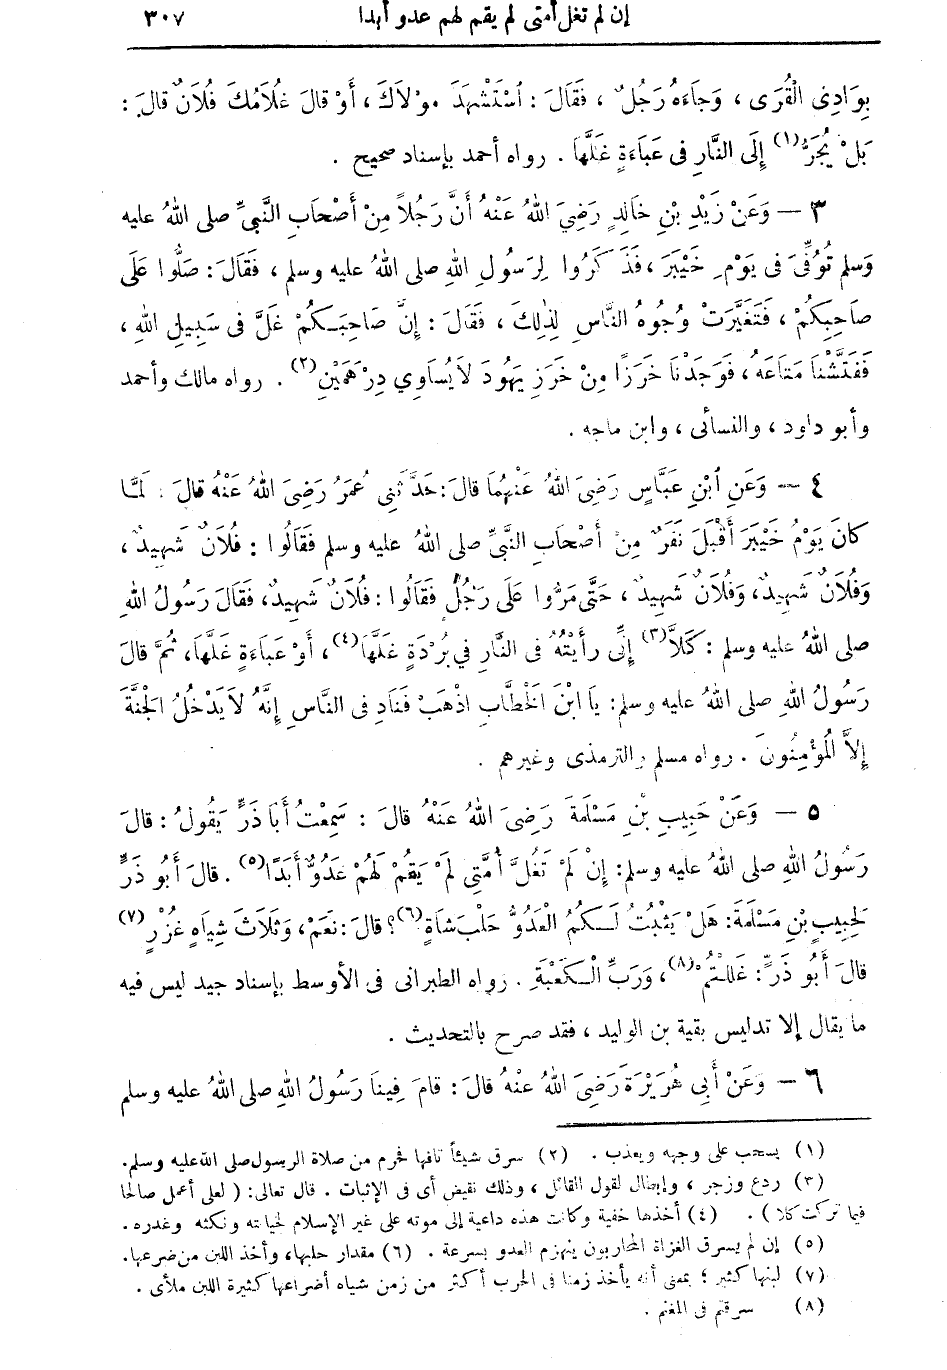 إن لم تغل أمتى لم يقم لهم عدو أبدا ٣٠٧
بِوَادِى الْقُرَى ، وَجَاءَهُ رَجُلٌ ، فَقَالَ : اُسْتُشْهِدَ مَوْلاَكَ ، أَوْ قالَ غُلاَمُكَ فُلاَنٌ قالَ :
بَلْ يُجَرُّ(١) إِلَى النَّارِ فى عَبَاءَةٍ غَلَّهَا . رواه أحمد بإسناد صحيح .
٣ — وَعَنْ زَيْدِ بْنِ خَالِدٍ رَضِىَ اللهُ عَنْهُ أَنَّ رَجُلاً مِنْ أَصْحَابِ النَّبِىِّ صلى اللهُ عليه
وَسلم تُوُفِّىَ فى يَوْمِ خَيْبَرَ ، فَذَكَرُوا لِرَسُولِ اللهِ صلى اللهُ عليه وسلم ، فَقَالَ : صَلُّوا عَلَى
صَاحِبِكُمْ ، فَتَغَيَّرَتْ وُجُوهُ النَّاسِ لِذَلِكَ ، فَقَالَ : إِنَّ صَاحِبَكُمْ غَلَّ فى سَبِيلِ اللهِ ،
فَفَتَّشْنَا مَتَاعَهُ ، فَوَجَدْنَا خَرَزًا مِنْ خَرَزِ يَهُودَ لاَ يُسَاوِي دِرْهَمَيْنِ(٢) . رواه مالك وأحمد
وأبو داود ، والنسائى ، وابن ماجه .
٤ — وَعَنِ اُبْنِ عَبَّاسٍ رَضِىَ اللهُ عَنْهُمَا قالَ : حَدَّثَنِى عُمَرُ رَضِىَ اللهُ عَنْهُ قالَ : لَمَّا
كانَ يَوْمُ خَيْبَرَ أَقْبَلَ نَفَرٌ مِنْ أَصْحَابِ النَّبِىِّ صلى اللهُ عليه وسلم فَقَالُوا : فُلاَنٌ شَهِيدٌ ،
وَفُلاَنٌ شَهِيدٌ ، وَفُلاَنٌ شَهِيدٌ ، حَتَّى مَرُّوا عَلَى رَجُلٍ فَقَالُوا : فُلاَنٌ شَهِيدٌ ، فَقَالَ رَسُولُ اللهِ
صلى اللهُ عليه وسلم : كَلاَّ(٣) إِنِّى رَأَيْتُهُ فى النَّارِ فِي بُرْدَةٍ غَلَّهَا(٤) ، أَوْ عَبَاءَةٍ غَلَّهَا ، ثُمَّ قالَ
رَسُولُ اللهِ صلى اللهُ عليه وسلم : يَا ابْنَ الْخَطَّابِ اذْهَبْ فَنَادِ فى النَّاسِ إِنَّهُ لاَ يَدْخُلُ الْجَنَّةَ
إِلاَّ الْمُؤْمِنُونَ . رواه مسلم والترمذى وغيرهم .
٥ — وَعَنْ حَبِيبِ بْنِ مَسْلَمَةَ رَضِىَ اللهُ عَنْهُ قالَ : سَمِعْتُ أَبَا ذَرٍّ يَقُولُ : قالَ
رَسُولُ اللهِ صلى اللهُ عليه وسلم : إِنْ لَمْ تَغُلَّ أُمَّتِى لَمْ يَقُمْ لَهُمْ عَدُوٌّ أَبَدًا(٥) . قالَ أَبُو ذَرٍّ
لِحَبِيبِ بْنِ مَسْلَمَةَ : هَلْ يَثْبُتُ لَكُمُ الْعَدُوُّ حَلْبَ شَاةٍ(٦)؟ قالَ : نَعَمْ ، وَثَلاَثَ شِيَاهٍ غُزْرٍ(٧)
قالَ أَبُو ذَرٍّ : غَلَلْتُمْ(٨) ، وَرَبِّ الْكَعْبَةِ . رواه الطبرانى فى الأوسط بإسناد جيد ليس فيه
ما يقال إلا تدليس بقية بن الوليد ، فقد صرح بالتحديث .
٦ — وَعَنْ أَبِى هُرَيْرَةَ رَضِىَ اللهُ عَنْهُ قالَ : قامَ فِينَا رَسُولُ اللهِ صلى اللهُ عليه وسلم
(١) يسحب على وجهه ويعذب . (٢) سرق شيئاً تافها فحرم من صلاة الرسول صلى الله عليه وسلم.
(٣) ردع وزجر ، وإبطال لقول القائل ، وذلك نقيض أى فى الإثبات . قال تعالى: ( لعلى أعمل صالحا
فيما تركت كلا ) . (٤) أخذها خفية وكانت هذه داعية إلى موته على غير الإسلام لخيانته ونكثه وغدره .
(٥) إن لم يسرق الغزاة المحاربون ينهزم العدو بسرعة . (٦) مقدار حلبها، وأخذ اللبن من ضرعها.
(٧) لبنها كثير ؛ بمعنى أنه يأخذ زمنا فى الحرب أكثر من زمن شياه أضراعها كثيرة اللبن ملأى .
(٨) سرقتم فى المغنم .